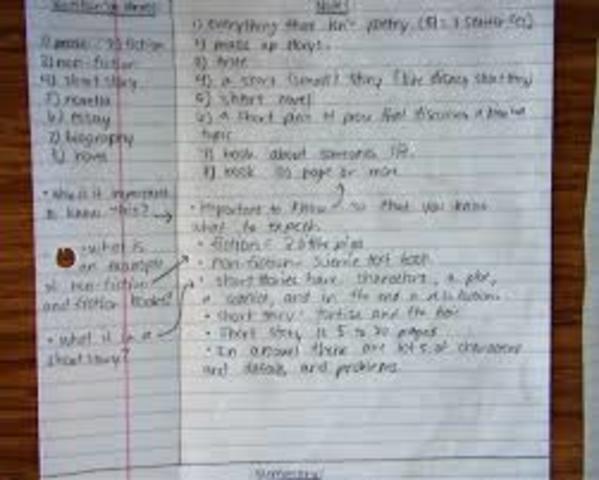 Notes
1) everything that isn't poetry.
1) prose 2) fiction
2) made up story.
3) non-fiction
3) true
4) short story
4) a short (small) story
5) novella
5) short novel
6) essay
6) a short piece of prose that discusses a
topic
7) biography
7) book about someones life.
8) novel
8) book 50 page or more
• Why is it important
to know this?
• important to know so that you know
what to expect.
• fiction =
• what is
an example
of non-fiction
and fiction books?
• non-fiction = science text book
• short stories have characters, a plot,
a and in the end a
• short story: tortise and the
• what is a
short story?
• Short story is 5 to 30 pages
• In a novel there are lots of characters
and details, and problems
Summary